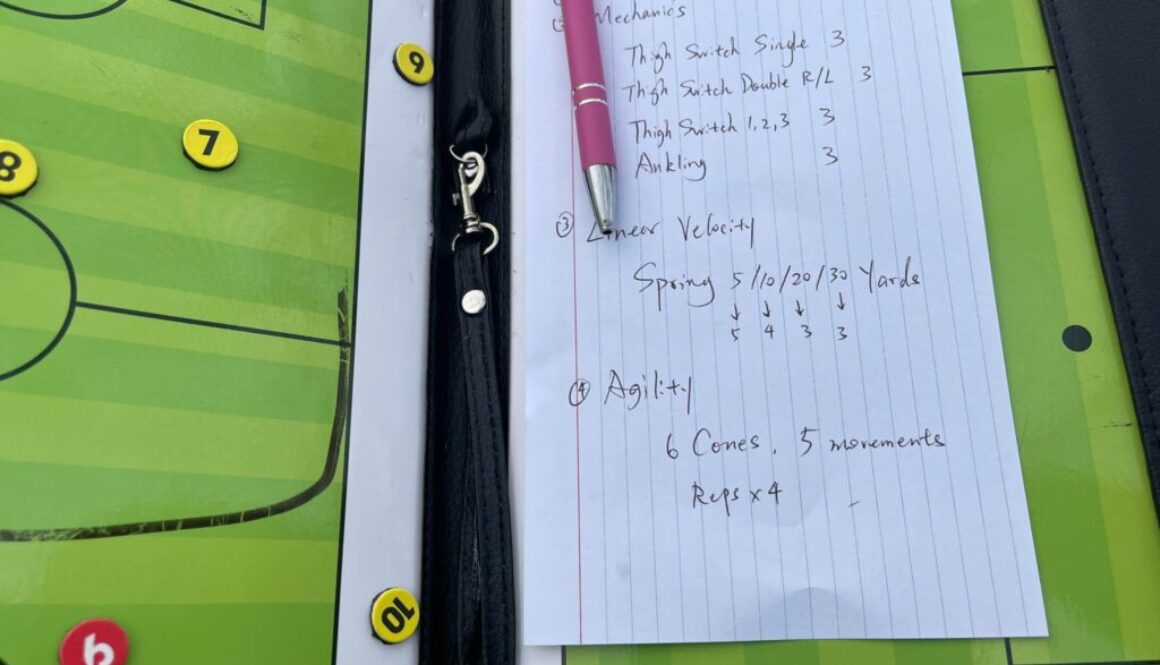 ② Mechanics
Thigh Switch Single 3
Thigh Switch Double R/L 3
Thigh Switch 1,2,3 3
Ankling 3
③ Linear Velocity
Spring 5/10/20/30 Yards
↓ ↓ ↓ ↓
5 4 3 3
④ Agility
6 Cones, 5 movements
Reps x 4
6
7
8
10
6